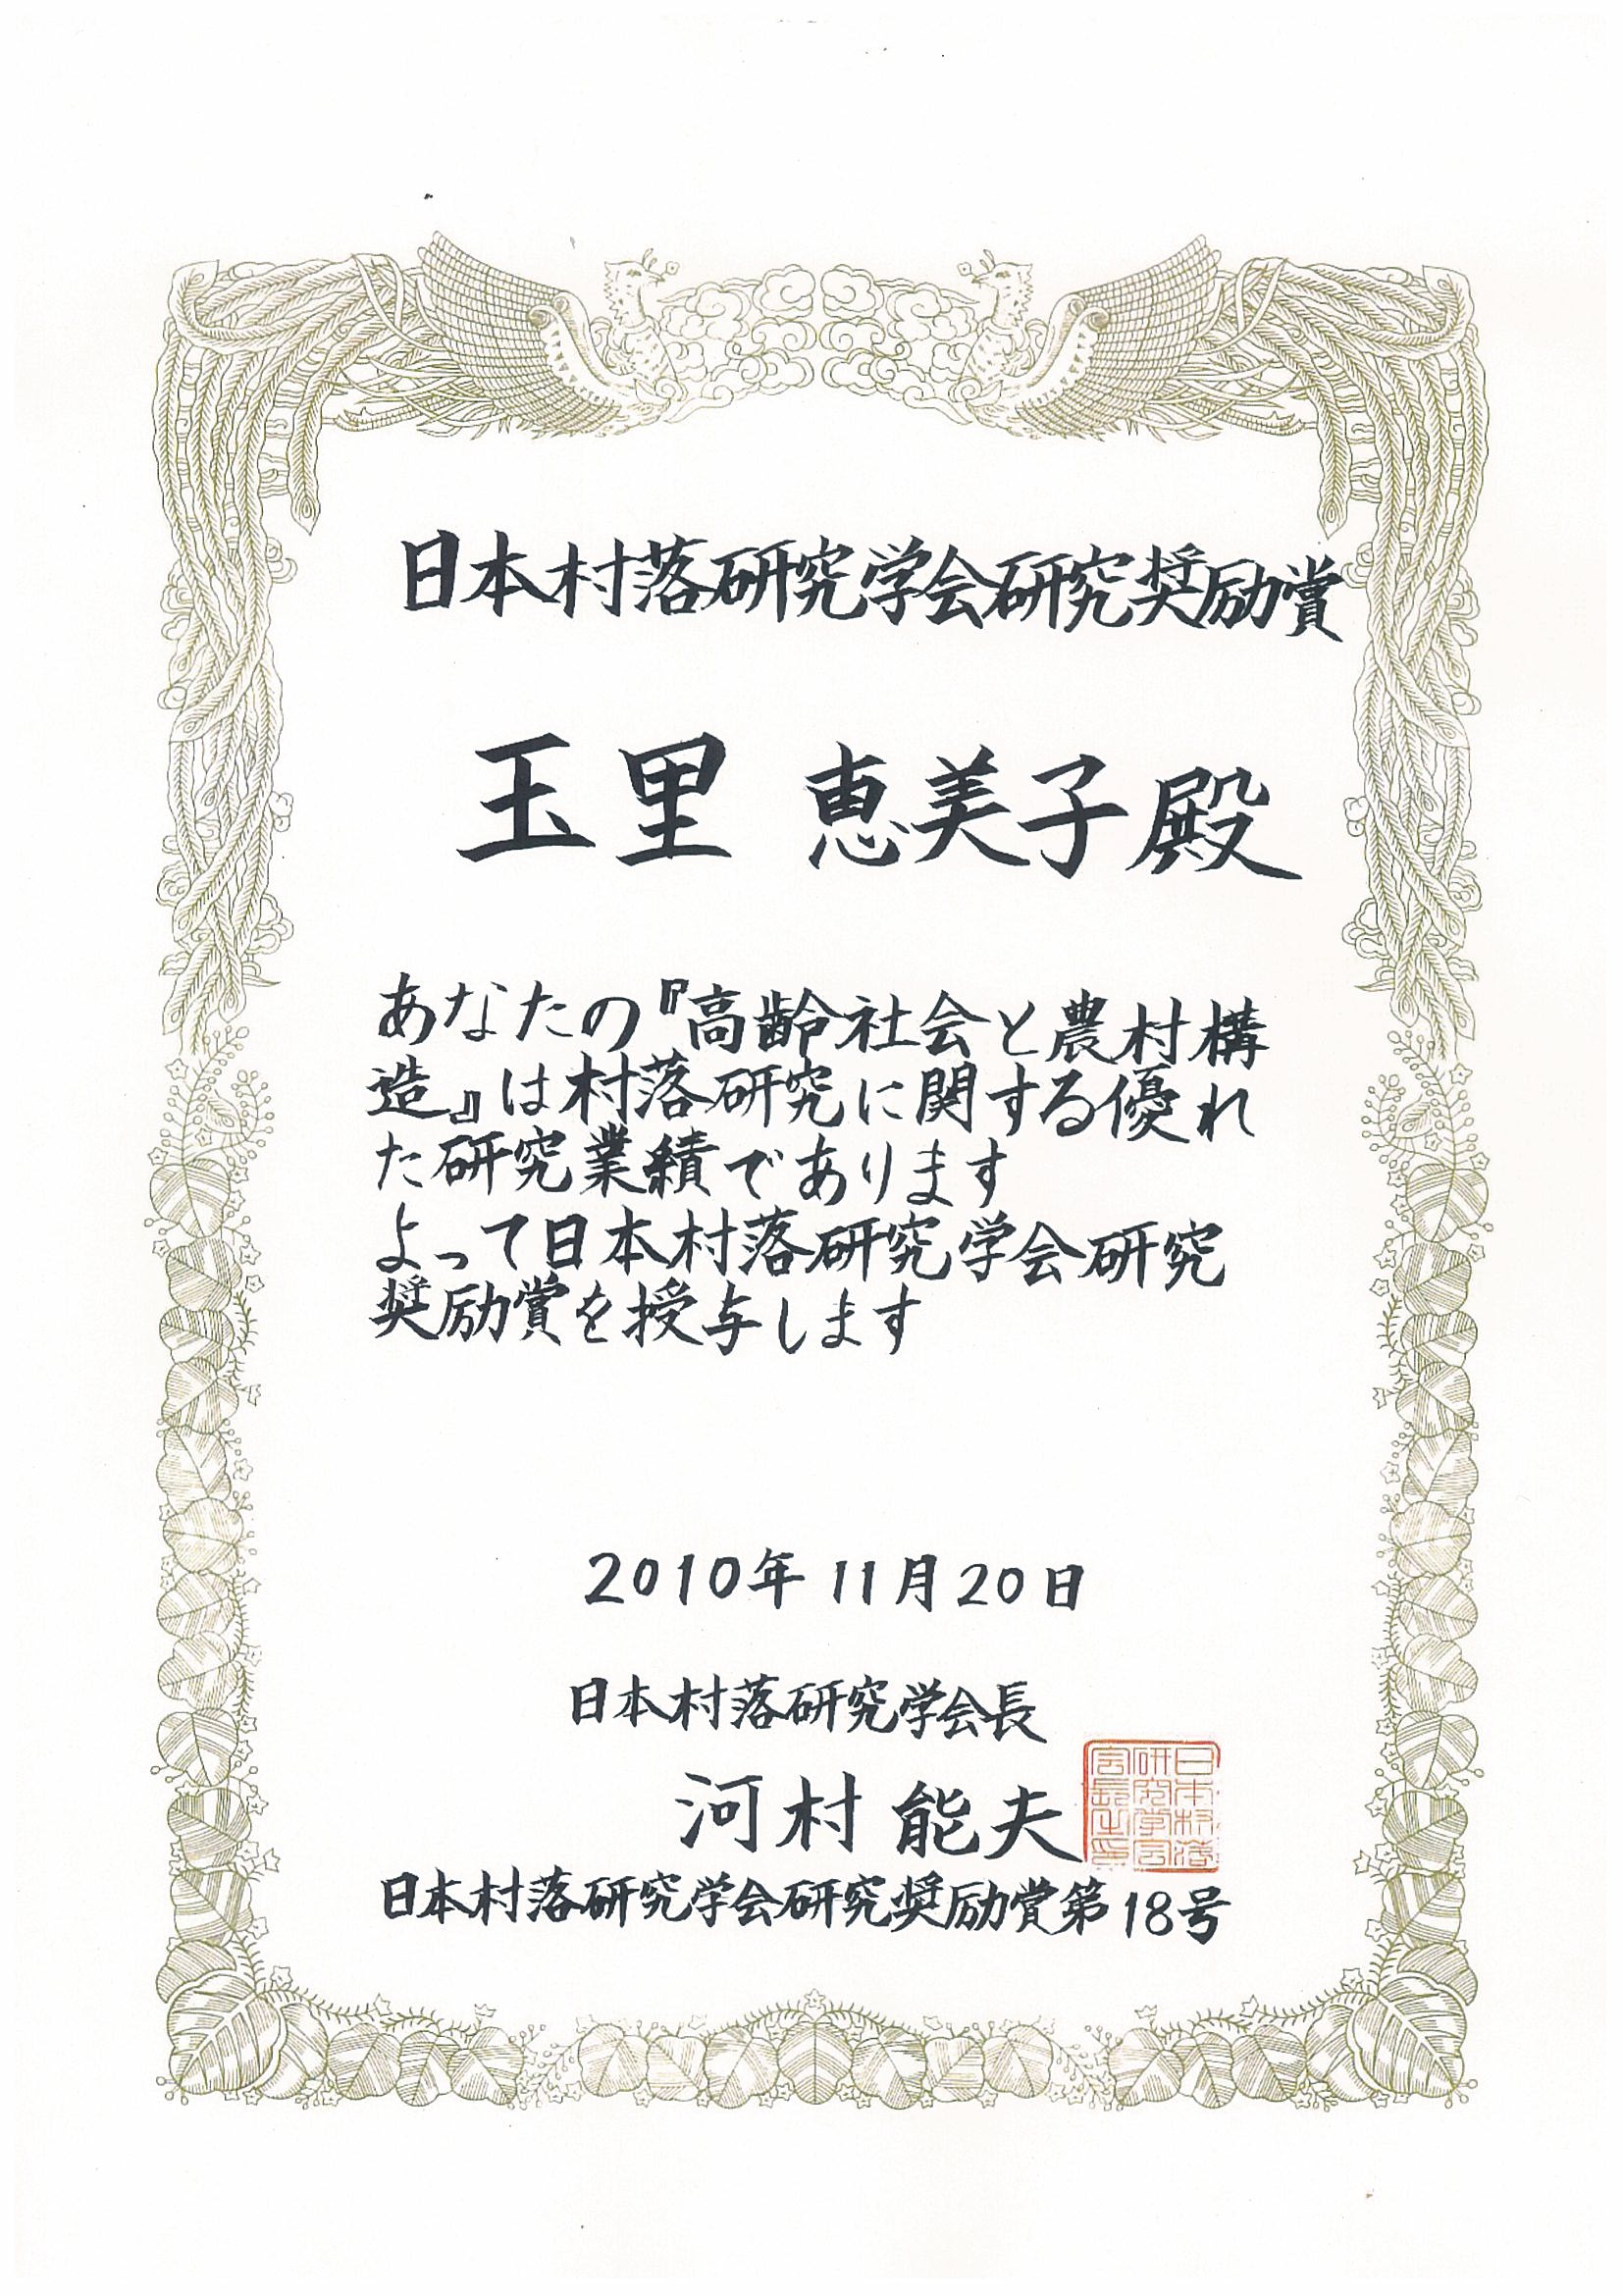 日本村落研究学会研究奨励賞
玉里 恵美子殿
あなたの『高齢社会と農村構
造』は村落研究に関する優れ
た研究業績であります
よって日本村落研究学会研究
奨励賞を授与します
2010年 11月20日
日本村落研究学会長
河村 能夫
日本村落
研究学会
会長之印
日本村落研究学会研究奨励賞第18号